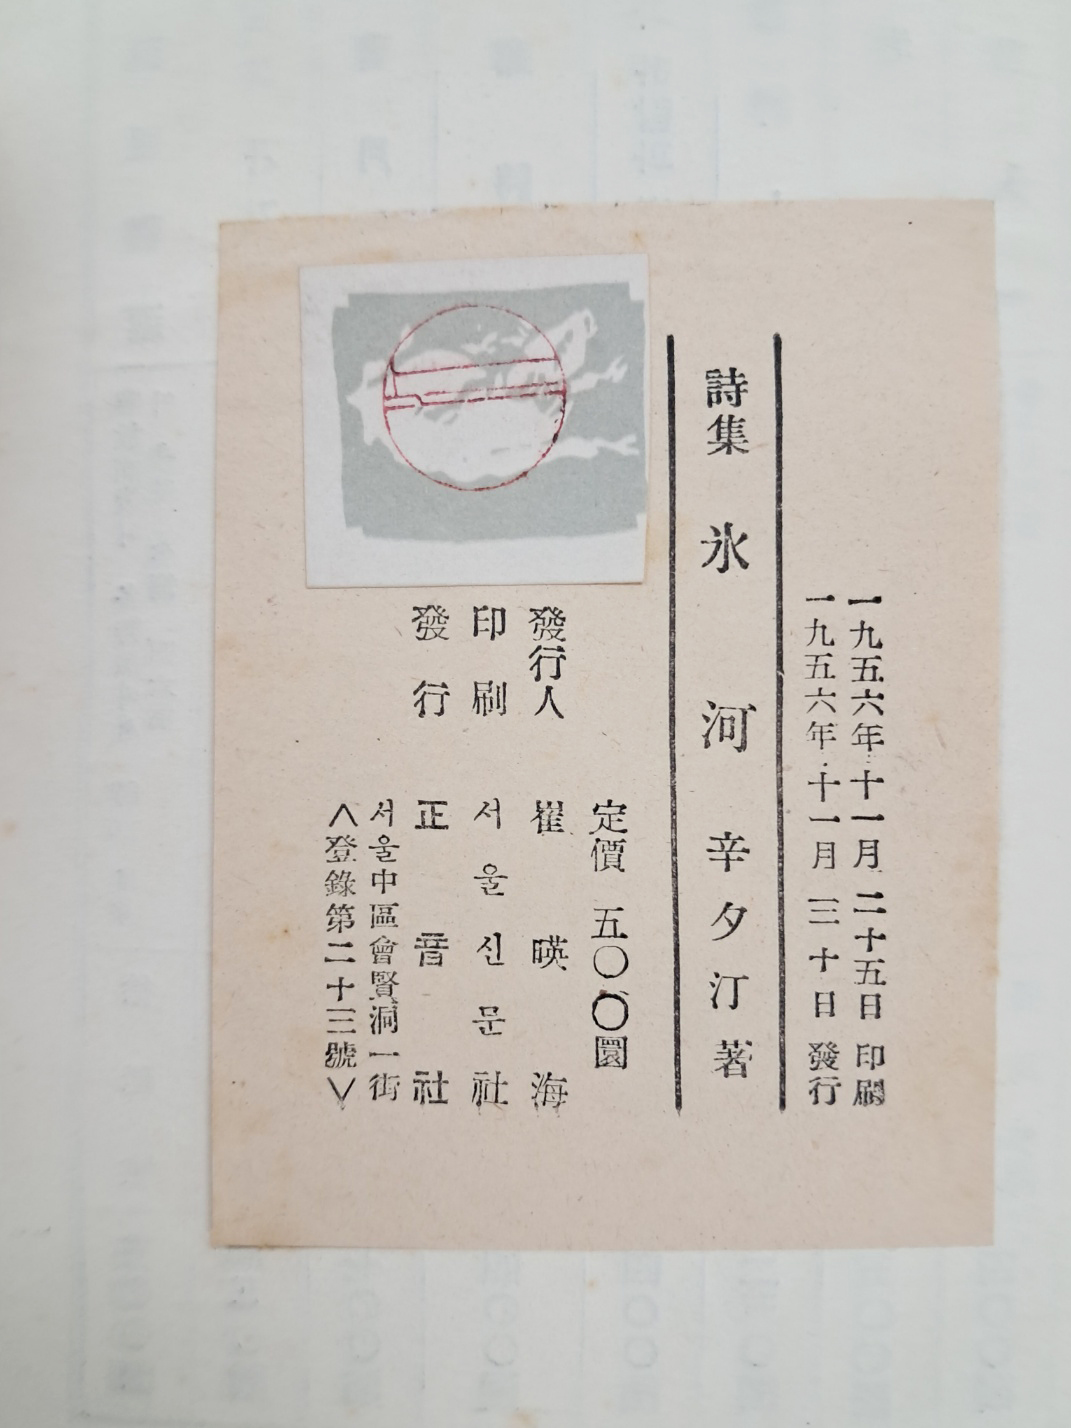 一九五六年十一月二十五日 印刷
一九五六年十一月三十日 發行
詩集 氷河 辛夕汀 著
定價 五〇〇圜
發行人 崔暎海
印刷 서울신문社
發行 正音社
서울中區會賢洞一街
＜登錄第二十三號＞